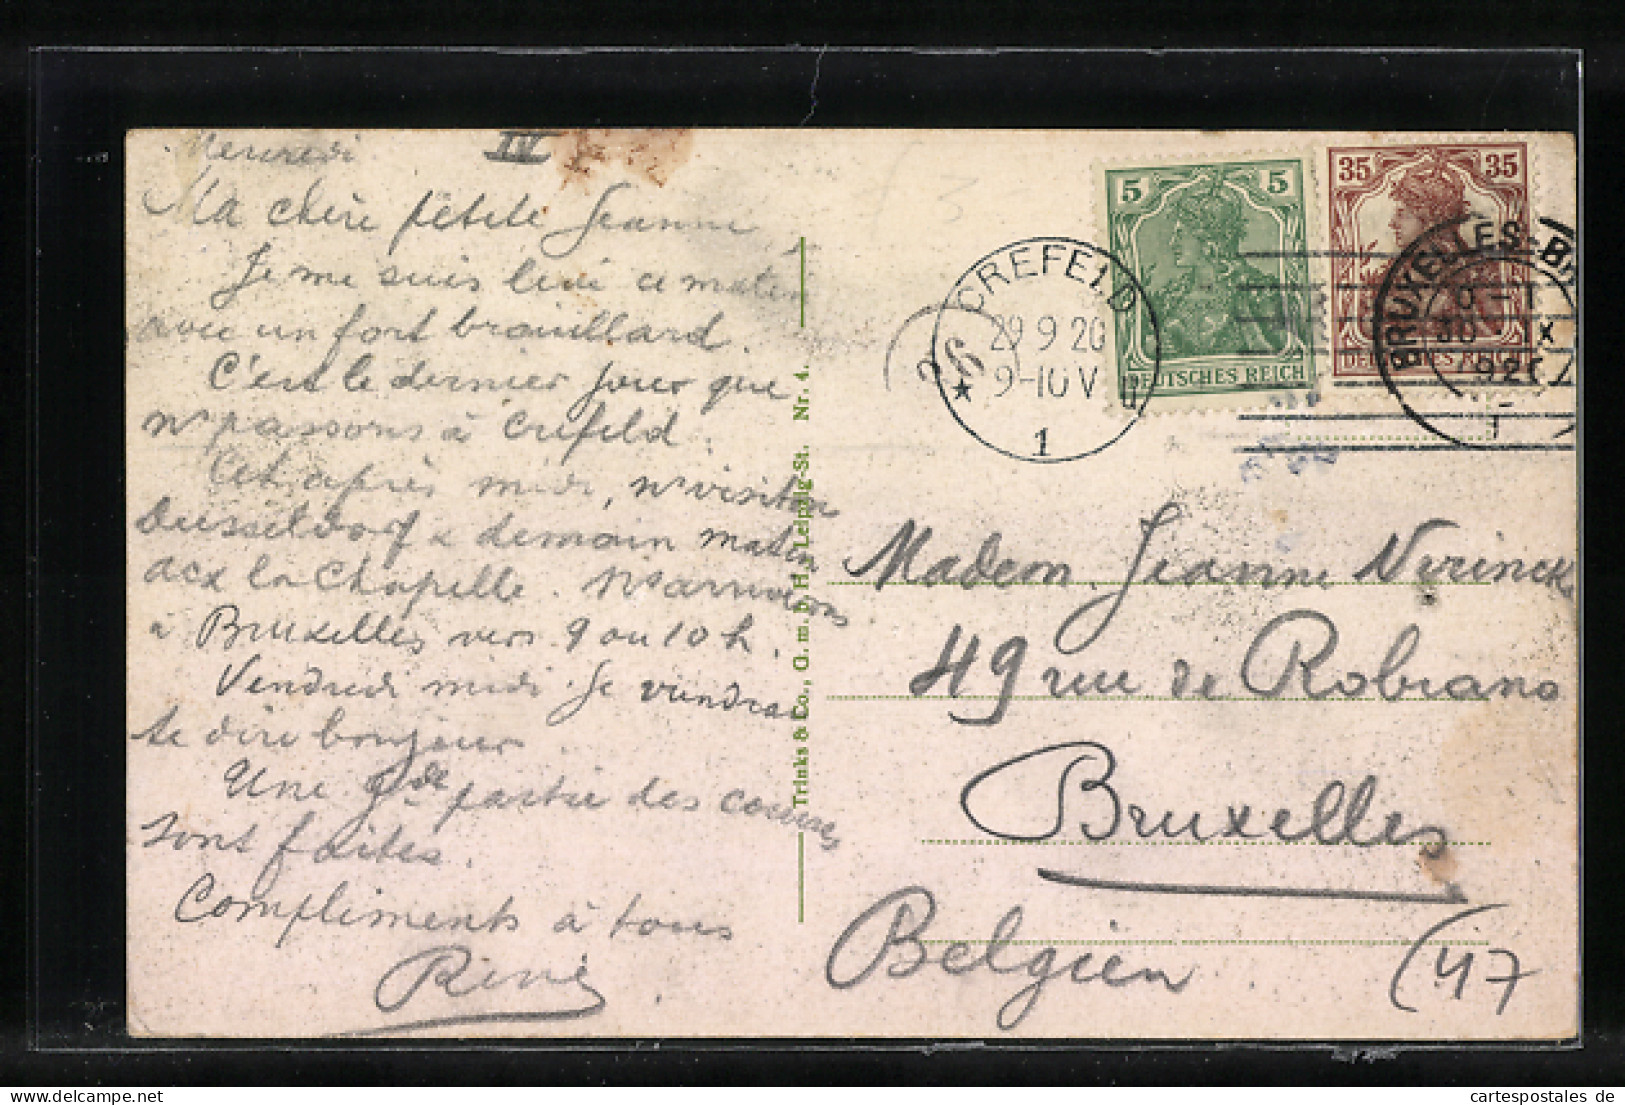 Mercredi IV
Ma chère petite Jeanne,
Je me suis levé ce matin
avec un fort brouillard.
C'est le dernier jour que
ns passons à Crefeld.
Cet après midi, ns visitons
Dusseldorf & demain matin
Aix la Chapelle. Ns arriverons
à Bruxelles vers 9 ou 10 h.
Vendredi midi je viendrai
te dire bonjour.
Une gde partie des courses
sont faites.
Compliments à tous
René
Trinks & Co., G. m. b. H., Leipzig-St. Nr. 4.
5 5
DEUTSCHES REICH
35 35
DEUTSCHES REICH
CREFELD
29 9 20
9-10 V
★ 1
BRUXELLES-
1920
Madem. Jeanne Nerincks
49 rue de Robiano
Bruxelles
Belgien
(47
www.cartespostales.de